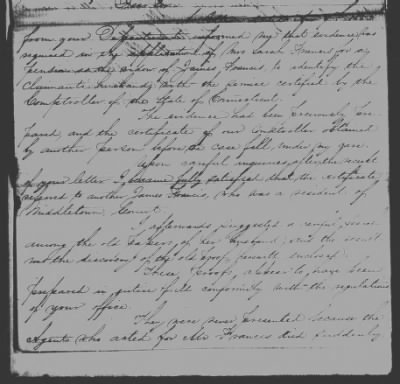 from your Department informed me that evidence was
required in the application of Mrs Sarah Francis for a
pension as the widow of James Francis to identify the
Claimants husband with the person certified by the
Comptroller of the State of Connecticut.
The evidence had been previously pre-
pared and the certificate of our Comptroller obtained
by another person before the case fell under my care.
Upon careful inquiries after the receipt
of your letter I became fully satisfied that the certificate
referred to another James Francis, who was a resident of
Middletown, Connt.
I afterwards suggested a careful search
among the old papers of her husband, and the result
was the discovery of the old proofs herewith enclosed.
These proofs, appear to have been
prepared in entire conformity with the regulations
of your office.
They were never presented because the
Agent who acted for Mrs Francis died suddenly